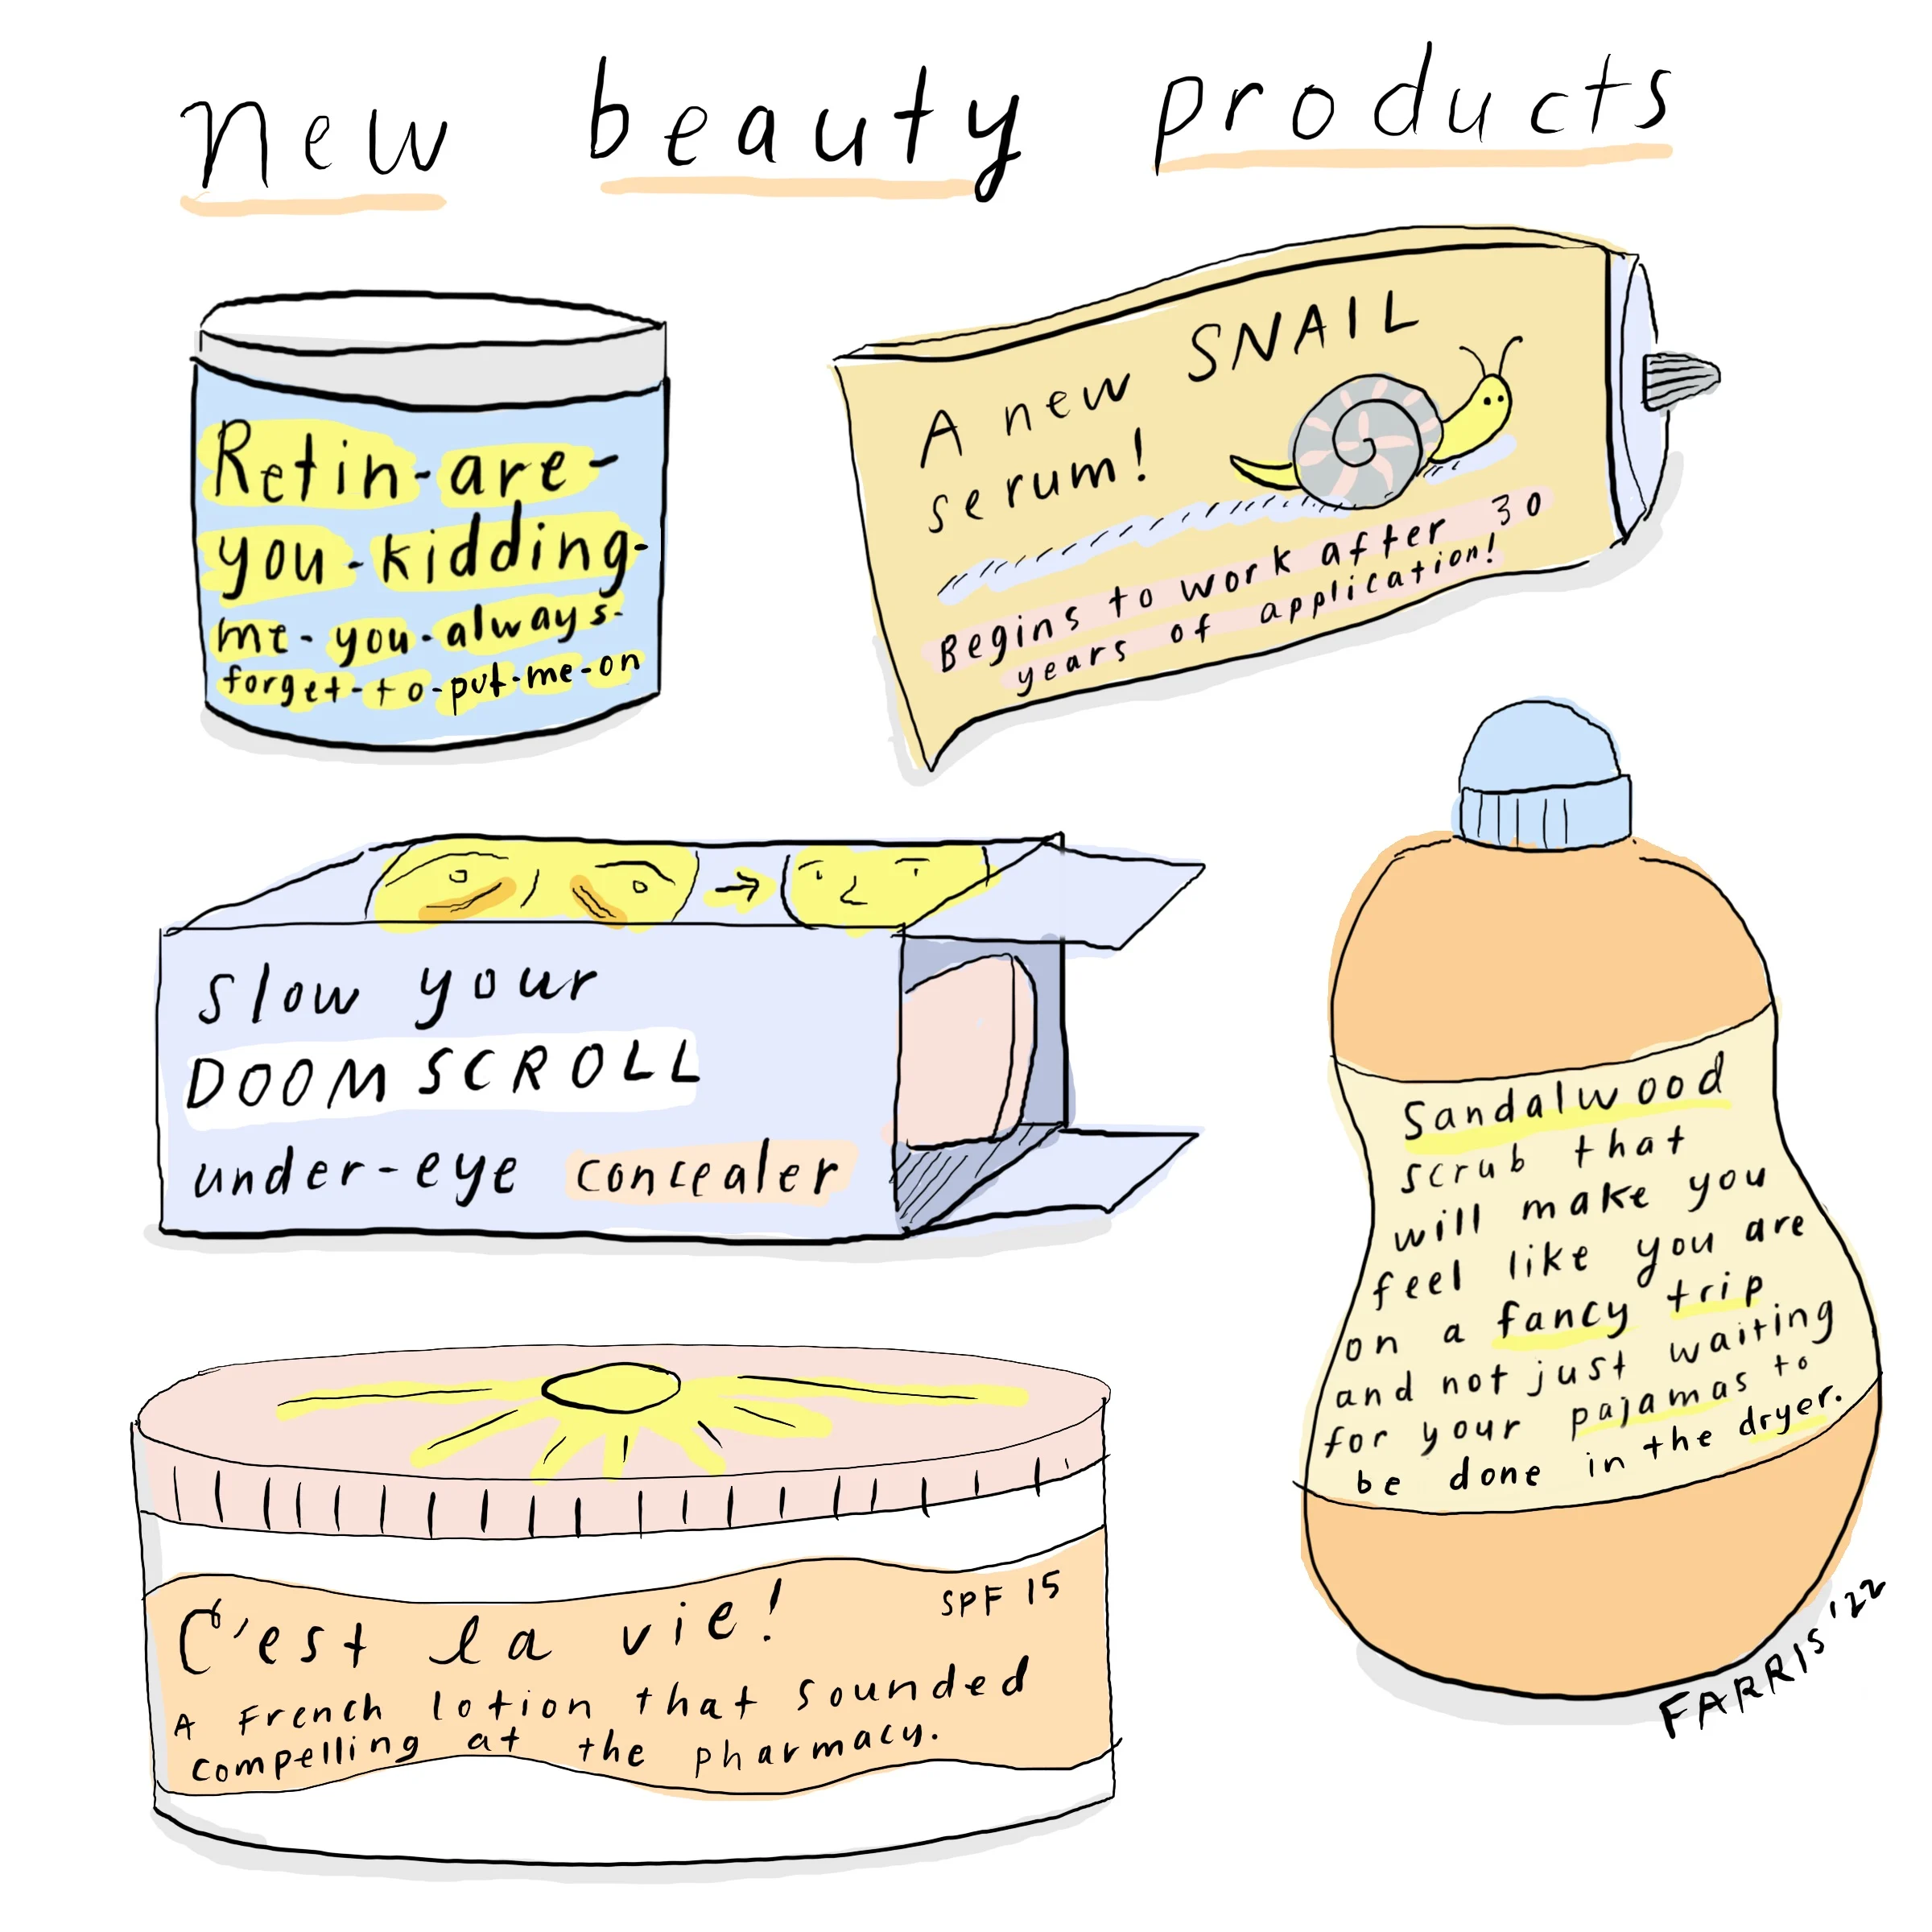 new beauty products
Retin-are-
you-kidding-
me-you-always-
forget-to-put-me-on
A new SNAIL
serum!
Begins to work after 30
years of application!
Slow your
DOOM SCROLL
under-eye concealer
Sandalwood
scrub that
will make you
feel like you are
on a fancy trip
and not just waiting
for your pajamas to
be done in the dryer.
C'est la vie!
SPF 15
A French lotion that sounded
compelling at the pharmacy.
FARRIS '22